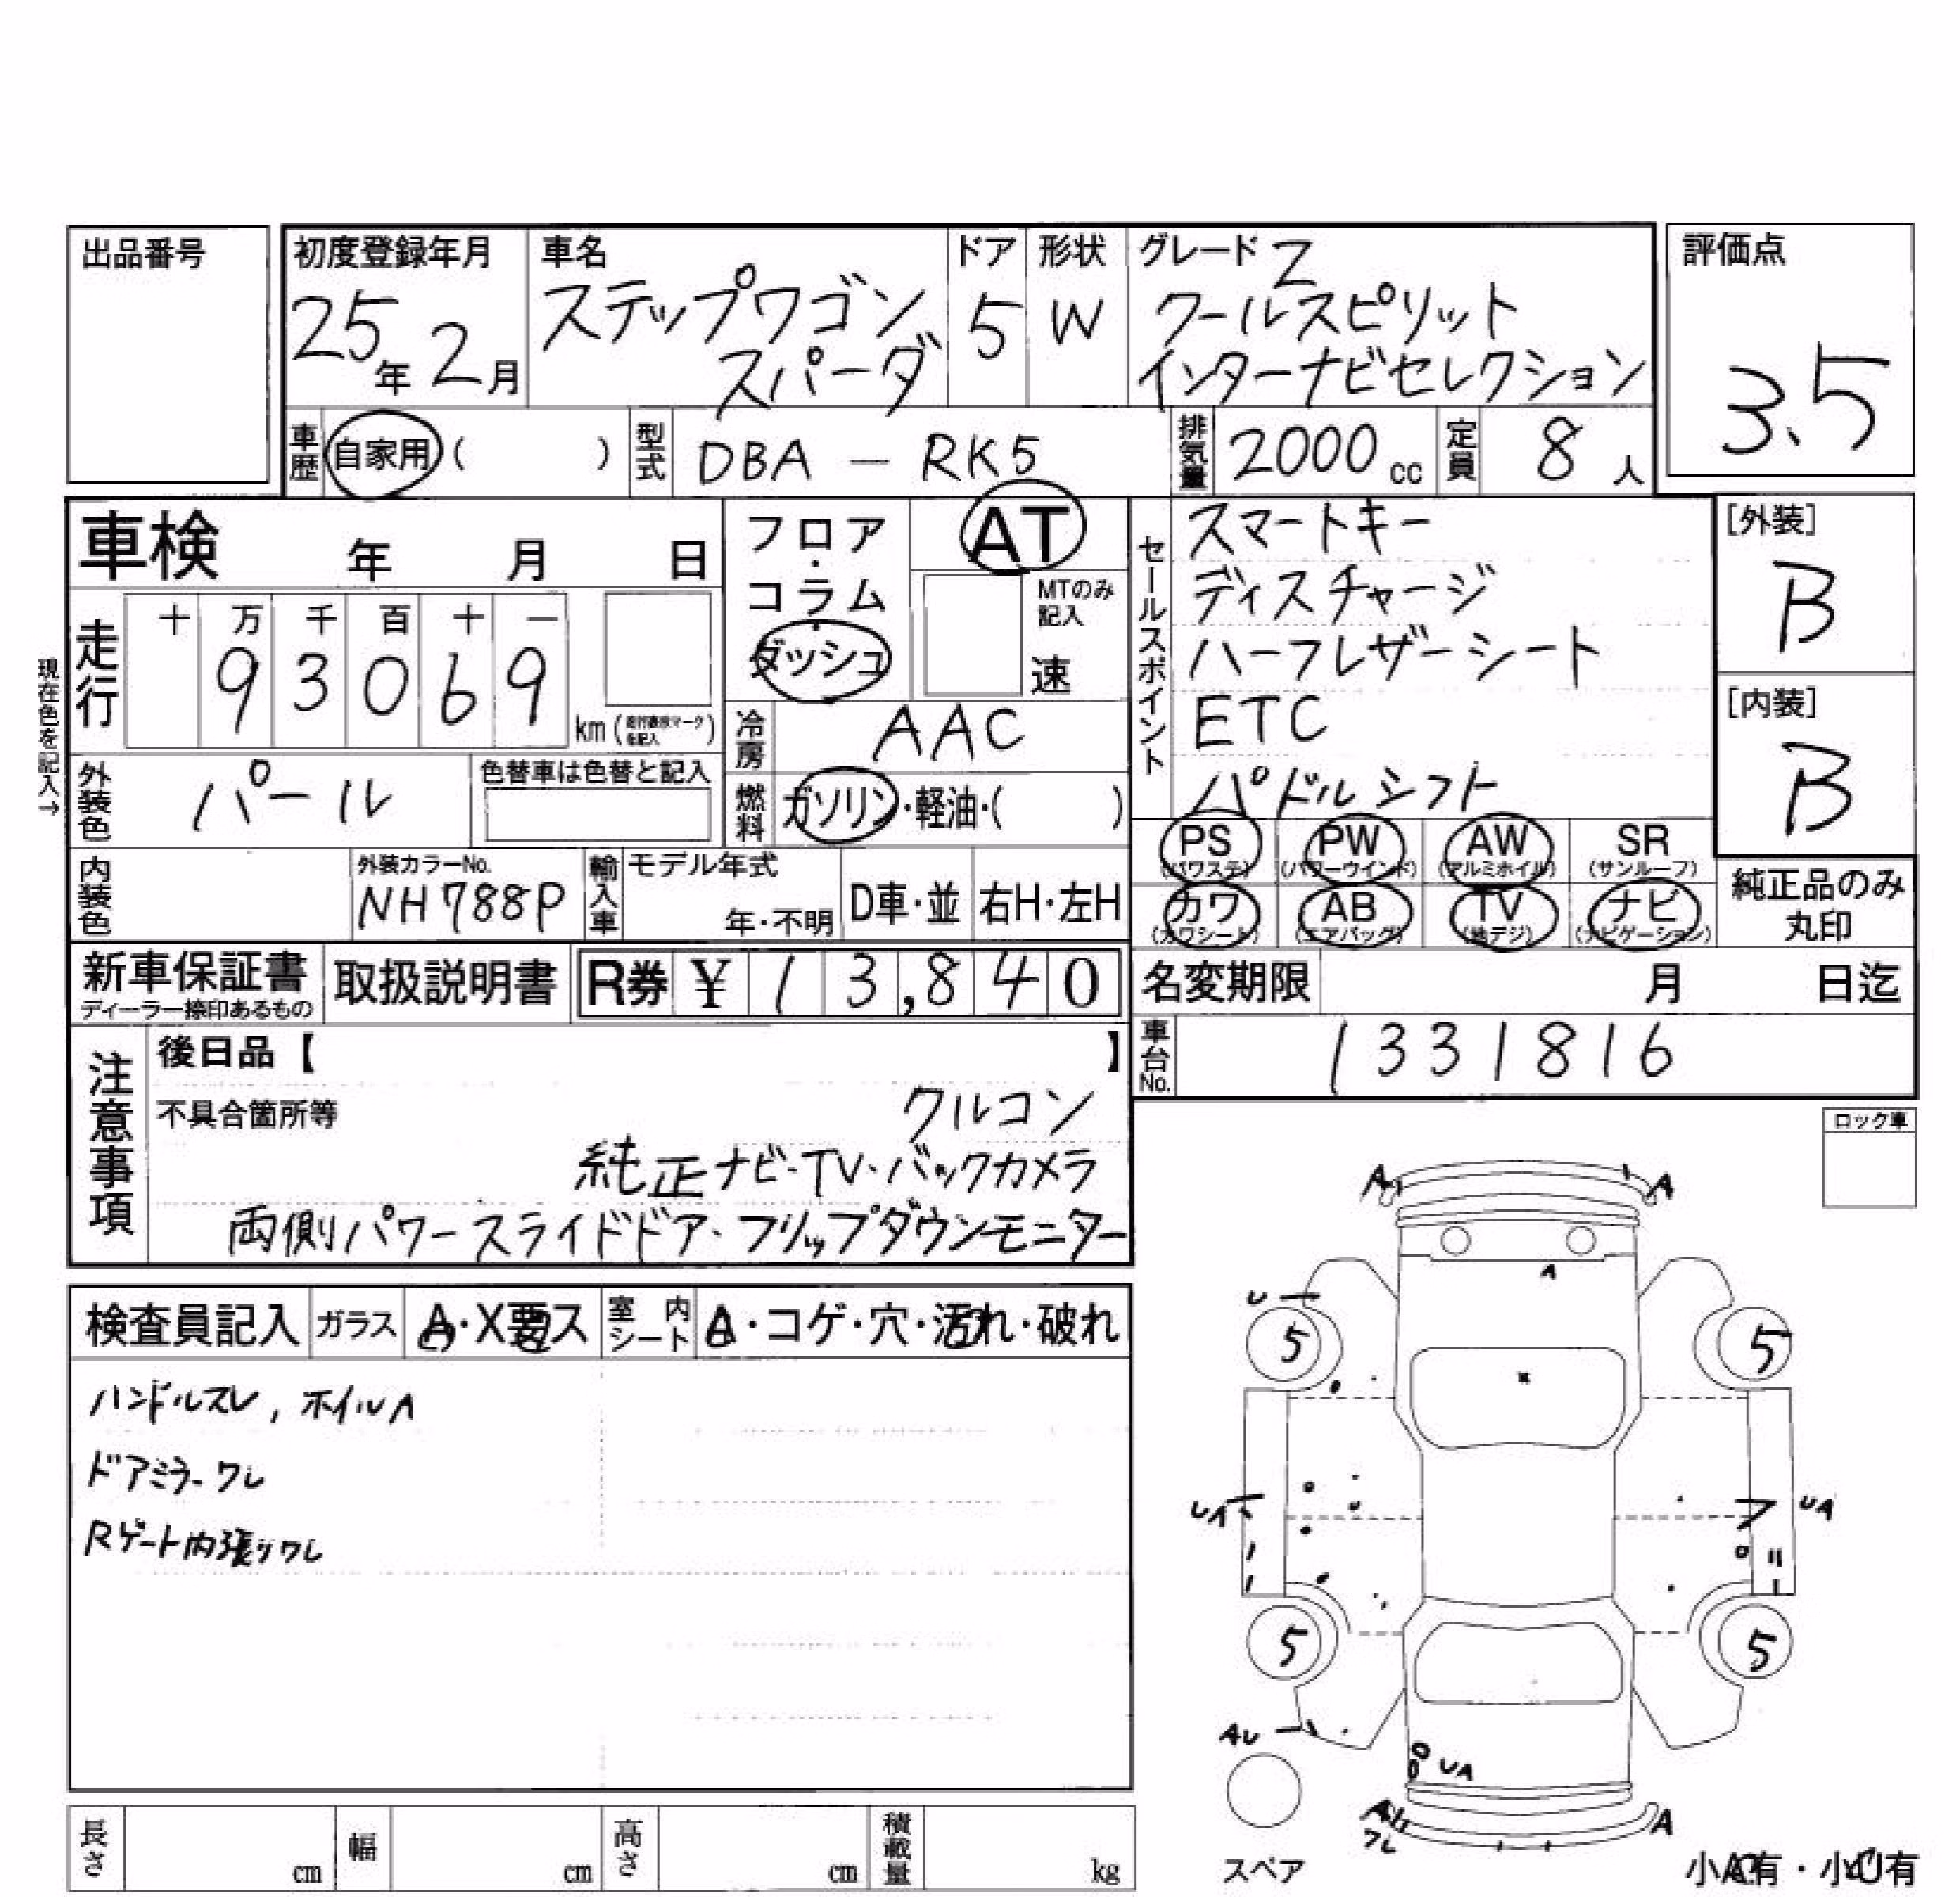 出品番号
初度登録年月
25年 2月
車名
ステップワゴン
スパーダ
ドア
5
形状
W
グレード Z
クールスピリット
インターナビセレクション
評価点
3.5
車歴 自家用 ( )
型式 DBA － RK5
排気量 2000 cc
定員 8 人
車検 年 月 日
走行
十 万 千 百 十 一
9 3 0 6 9
km (走行表示マークを記入)
現在色を記入→
フロア・
コラム・
ダッシュ
AT
MTのみ
記入
速
冷房 AAC
燃料 ガソリン・軽油・( )
外装色 パール
色替車は色替と記入
内装色
外装カラーNo.
NH788P
輸入車
モデル年式
年・不明
D車・並
右H・左H
セールスポイント
スマートキー
ディスチャージ
ハーフレザーシート
ETC
パドルシフト
[外装]
B
[内装]
B
PS PW AW SR
(パワステ) (パワーウインド) (アルミホイル) (サンルーフ)
カワ AB TV ナビ
(カワシート) (エアバッグ) (地デジ) (ナビゲーション)
純正品のみ
丸印
新車保証書
ディーラー捺印あるもの
取扱説明書
R券 ¥ 1 3,8 4 0
名変期限 月 日迄
車台No. 1331816
注意事項
後日品【 】
不具合箇所等
クルコン
純正ナビ・TV・バックカメラ
両側パワースライドドア・フリップダウンモニター
ロック車
検査員記入
ガラス A・X要ス
室内シート A・コゲ・穴・汚れ・破れ
ハンドルスレ, ホイルA
ドアミラーワレ
Rゲート内張りワレ
A A
A
U
5 5
x
UA UA
5 5
AU
UA
A A
ワレ
スペア
小A有・小U有
長さ cm
幅 cm
高さ cm
積載量 kg